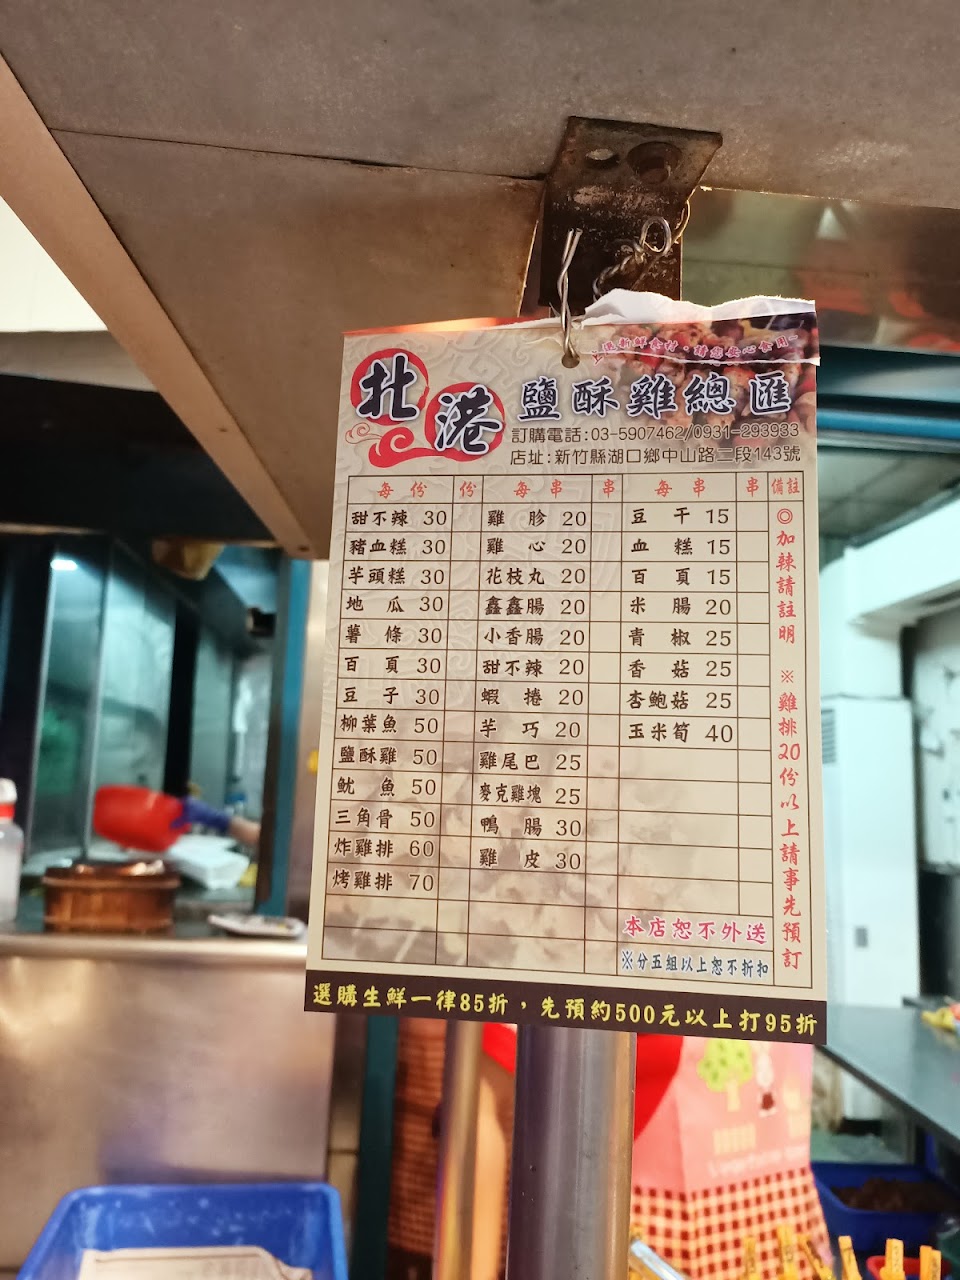 上選新鮮食材，請您安心食用~
北港 鹽酥雞總匯
訂購電話:03-5907462/0931-293933
店址:新竹縣湖口鄉中山路二段143號
每份 份 每串 串 每串 串 備註
甜不辣 30 雞胗 20 豆干 15
豬血糕 30 雞心 20 血糕 15
芋頭糕 30 花枝丸 20 百頁 15
地瓜 30 鑫鑫腸 20 米腸 20
薯條 30 小香腸 20 青椒 25
百頁 30 甜不辣 20 香菇 25
豆子 30 蝦捲 20 杏鮑菇 25
柳葉魚 50 芋巧 20 玉米筍 40
鹽酥雞 50 雞尾巴 25
魷魚 50 麥克雞塊 25
三角骨 50 鴨腸 30
炸雞排 60 雞皮 30
烤雞排 70
◎加辣請註明 ※雞排20份以上請事先預訂
本店恕不外送
※分五組以上恕不折扣
選購生鮮一律85折，先預約500元以上打95折